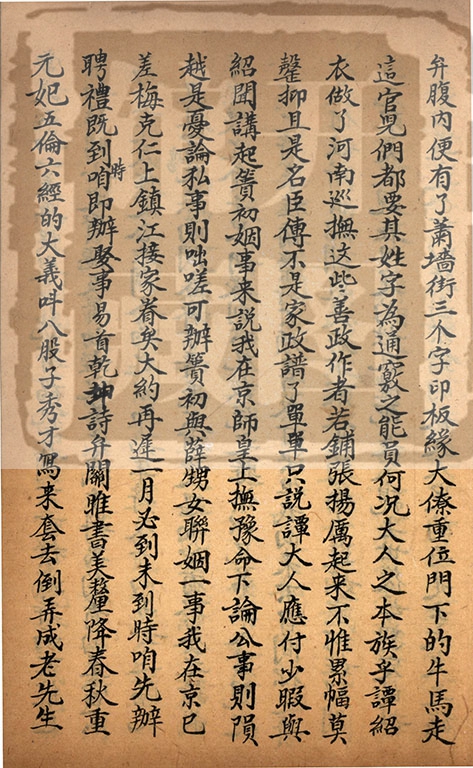 弁腹內便有了蕭墻街三个字印板緣大僚重位門下的牛馬走
這官兒們都要其姓字為通竅之能員何况大人之本族乎譚紹
衣做了河南巡撫这些善政作者若鋪張揚厲起来不惟累幅莫
罄抑且是名臣傳不是家政譜了單單只說譚大人應付少暇與
紹聞講起簣初姻事来說我在京師皇上撫豫命下論公事則隕
越是憂論私事則咄嗟可辦簣初與薛甥女聯姻一事我在京已
差梅克仁上鎮江接家眷矣大約再遲一月必到未到時咱先辦
聘禮既到時咱即辦娶事易首乾坤詩弁關雎書美釐降春秋重
元妃五倫六經的大義呌八股子秀才寫来套去倒弄成老先生